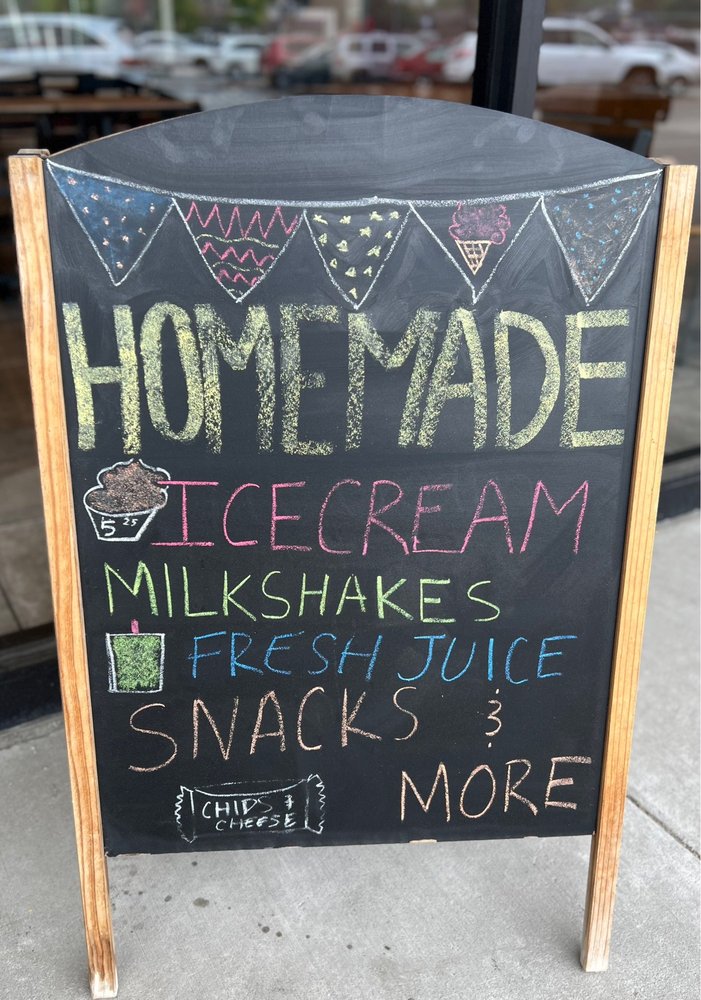 HOMEMADE
5 25
ICECREAM
MILKSHAKES
FRESH JUICE
SNACKS &
MORE
CHIDS &
CHEESE